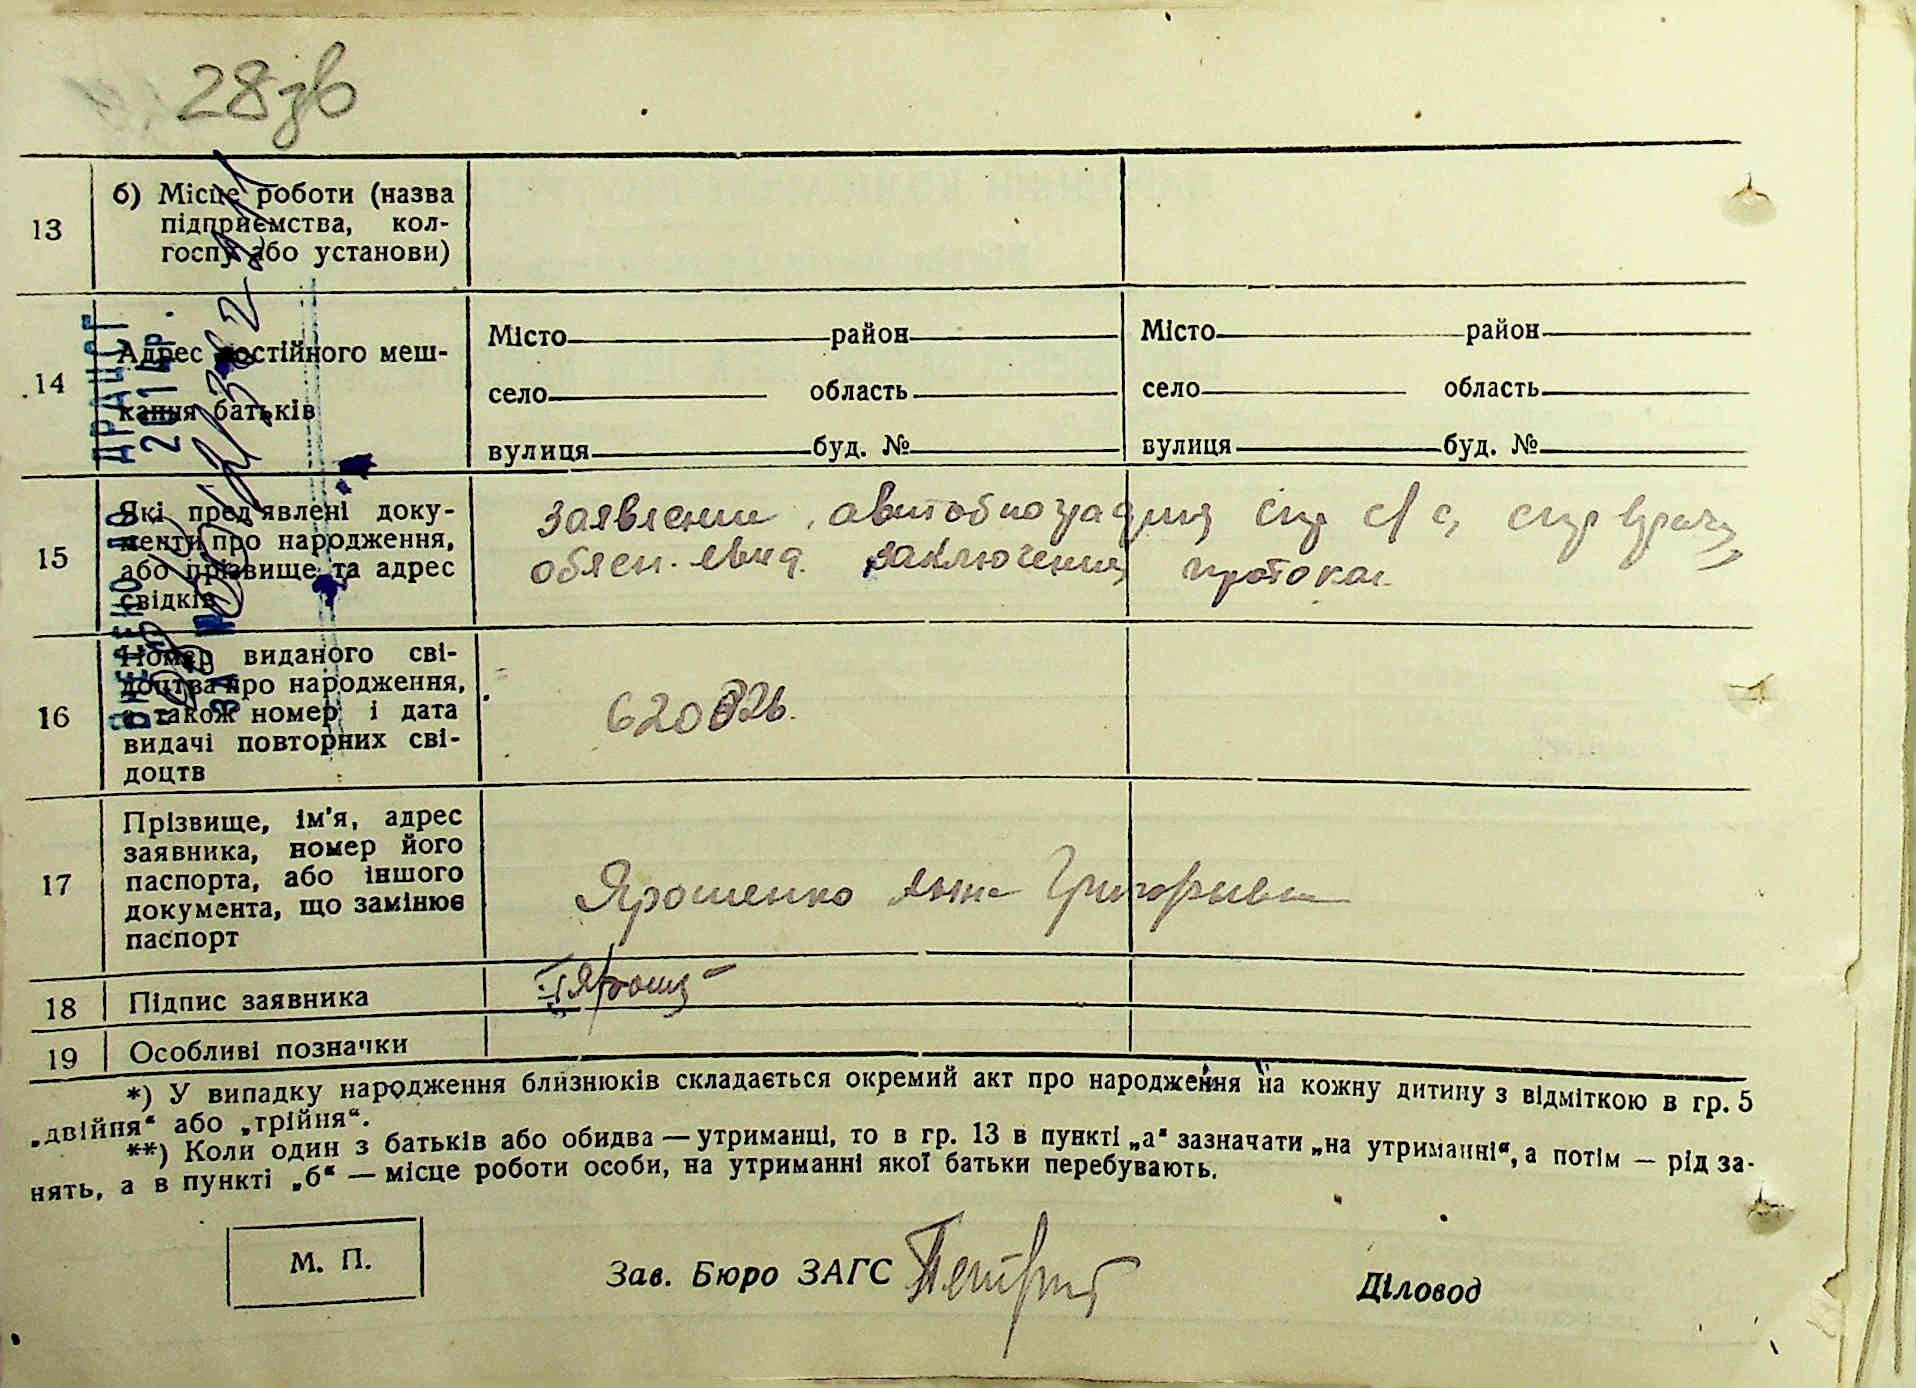 28зв
13
б) Місце роботи (назва
підприємства, кол-
госпу або установи)
14
Адрес постійного меш-
кання батьків
Місто район
село область
вулиця буд. №
Місто район
село область
вулиця буд. №
15
Які пред'явлені доку-
менти про народження,
або прізвище та адрес
свідків
заявление, автобиография спр с/с, спр врача,
заключение протокол
16
Номер виданого сві-
доцтва про народження,
а також номер і дата
видачі повторних сві-
доцтв
17
Прізвище, ім'я, адрес
заявника, номер його
паспорта, або іншого
документа, що замінює
паспорт
Ярошенко Анна Григорьевна
18
Підпис заявника
19
Особливі позначки
*) У випадку народження близнюків складається окремий акт про народження на кожну дитину з відміткою в гр. 5
„двійня“ або „трійня“.
**) Коли один з батьків або обидва — утриманці, то в гр. 13 в пункті „а“ зазначати „на утриманні“, а потім — рід за-
нять, а в пункті „б“ — місце роботи особи, на утриманні якої батьки перебувають.
М. П.
Зав. Бюро ЗАГС
Діловод
ВНЕСЕНО ДО ДРАЦСГ
ЗА № 2014р.